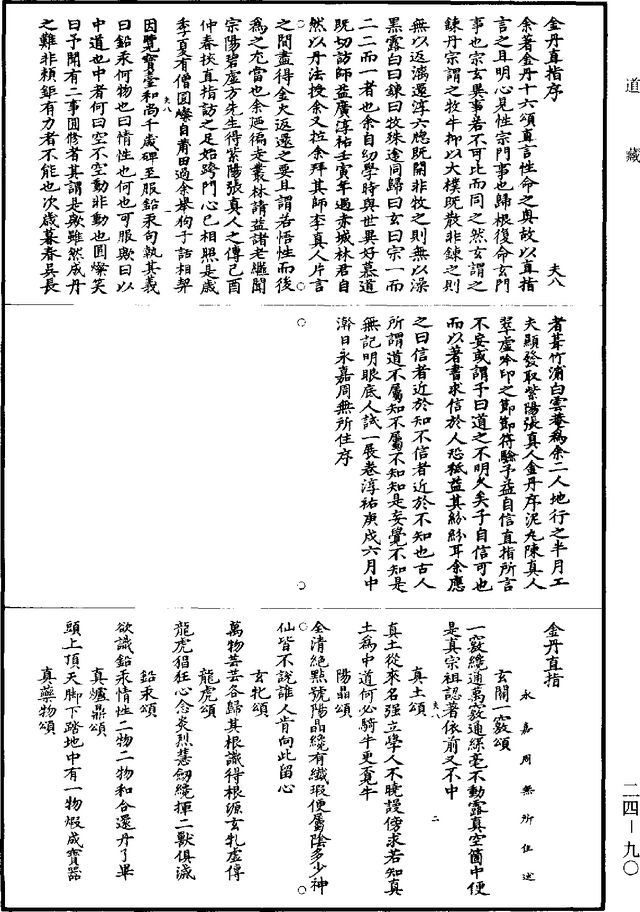 道藏
金丹直指序 夫八
余著金丹十六頌直言性命之奧故以直指
言之且明心見性宗門事也歸根復命玄門
事也宗玄異事若不可比而同之然玄謂之
鍊丹宗謂之牧牛抑以大樸既散非鍊之則
無以返漓還淳六牕既開非牧之則無以澡
黑露白曰鍊曰牧殊途同歸曰玄曰宗一而
二二而一者也余自幼學時與世異好慕道
既切訪師益廣淳祐壬寅年遇赤城林君自
然以丹法授余又拉余拜其師李真人片言
之間盡得金火返還之要且謂若悟性而後
為之尤當也余遍徧走叢林請益諸老繼聞
宗陽碧虛方先生得紫陽張真人之傳己酉
仲春挾直指訪之足始跨門心已相照是歲
季夏有僧圓燦自莆田過余舉狗子話相契
夫八
因覽寶臺和尚千歲碑至服鉛汞句執其義
曰鉛汞何物也曰情性也何也可服歟曰以
中道也中者何曰空不空動非動也圓燦笑
曰予聞有二事圓修者其謂是歟雖然成丹
之難非賴鉅有力者不能也次歲暮春吳長
者葺竹浦白雲菴為余二人地行之半月工
夫顯發取紫陽張真人金丹序泥丸陳真人
翠虛吟印之節節符驗予益自信直指所言
不妄或謂予曰道之不明久矣子自信可也
而以著書求信於人恐秪益其紛紛耳余應
之曰信者近於知不信者近於不知也古人
所謂道不屬知不屬不知知是妄覺不知是
無記明眼底人試一展卷淳祐庚戌六月中
澣日永嘉周無所住序
金丹直指
永嘉周無所住述
玄關一竅頌
一竅纔通萬竅通絲毫不動露真空箇中便
是真宗祖認著依前又不中
真土頌
夫八 二
真土從來名强立學人不曉謾傍求若知真
土為中道何必騎牛更覓牛
陽晶頌
全清絕點號陽晶纔有纖瑕便屬陰多少神
仙皆不說誰人肯向此留心
玄牝頌
萬物芸芸各歸其根識得根源玄牝虛傳
龍虎頌
龍虎猖狂心念炎烈慧劒纔揮二獸俱滅
鉛汞頌
欲識鉛汞情性二物二物和合還丹了畢
真爐鼎頌
頭上頂天脚下踏地中有一物煅成寶器
真藥物頌
二四—九〇